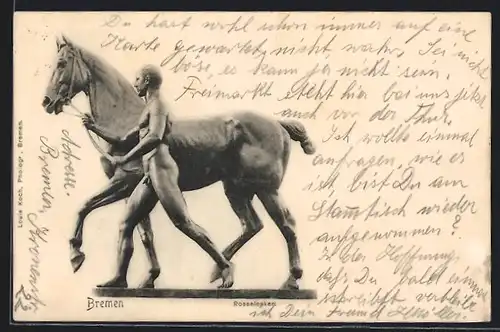 Du hast wohl schon immer auf eine
Karte gewartet, nicht wahr. Sei nicht
böse, es kann ja nicht sein.
Freimarkt steht hier bei uns jetzt
auch vor der Thür.
Ich wollte einmal
anfragen, wie er
ist, bist Du am
Stammtisch wieder
aufgenommen?
In der Hoffnung,
daß Du bald einmal
schreibst verbleibe
ich Dein Freund
Adresse:
Bremen,
Louis Koch, Photogr., Bremen.
Bremen
Rosselenker.